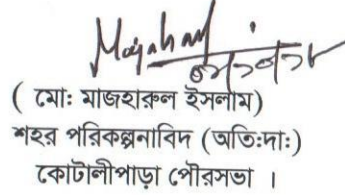 ( মো: মাজহারুল ইসলাম)
শহর পরিকল্পনাবিদ (অতি:দা:)
কোটালীপাড়া পৌরসভা ।